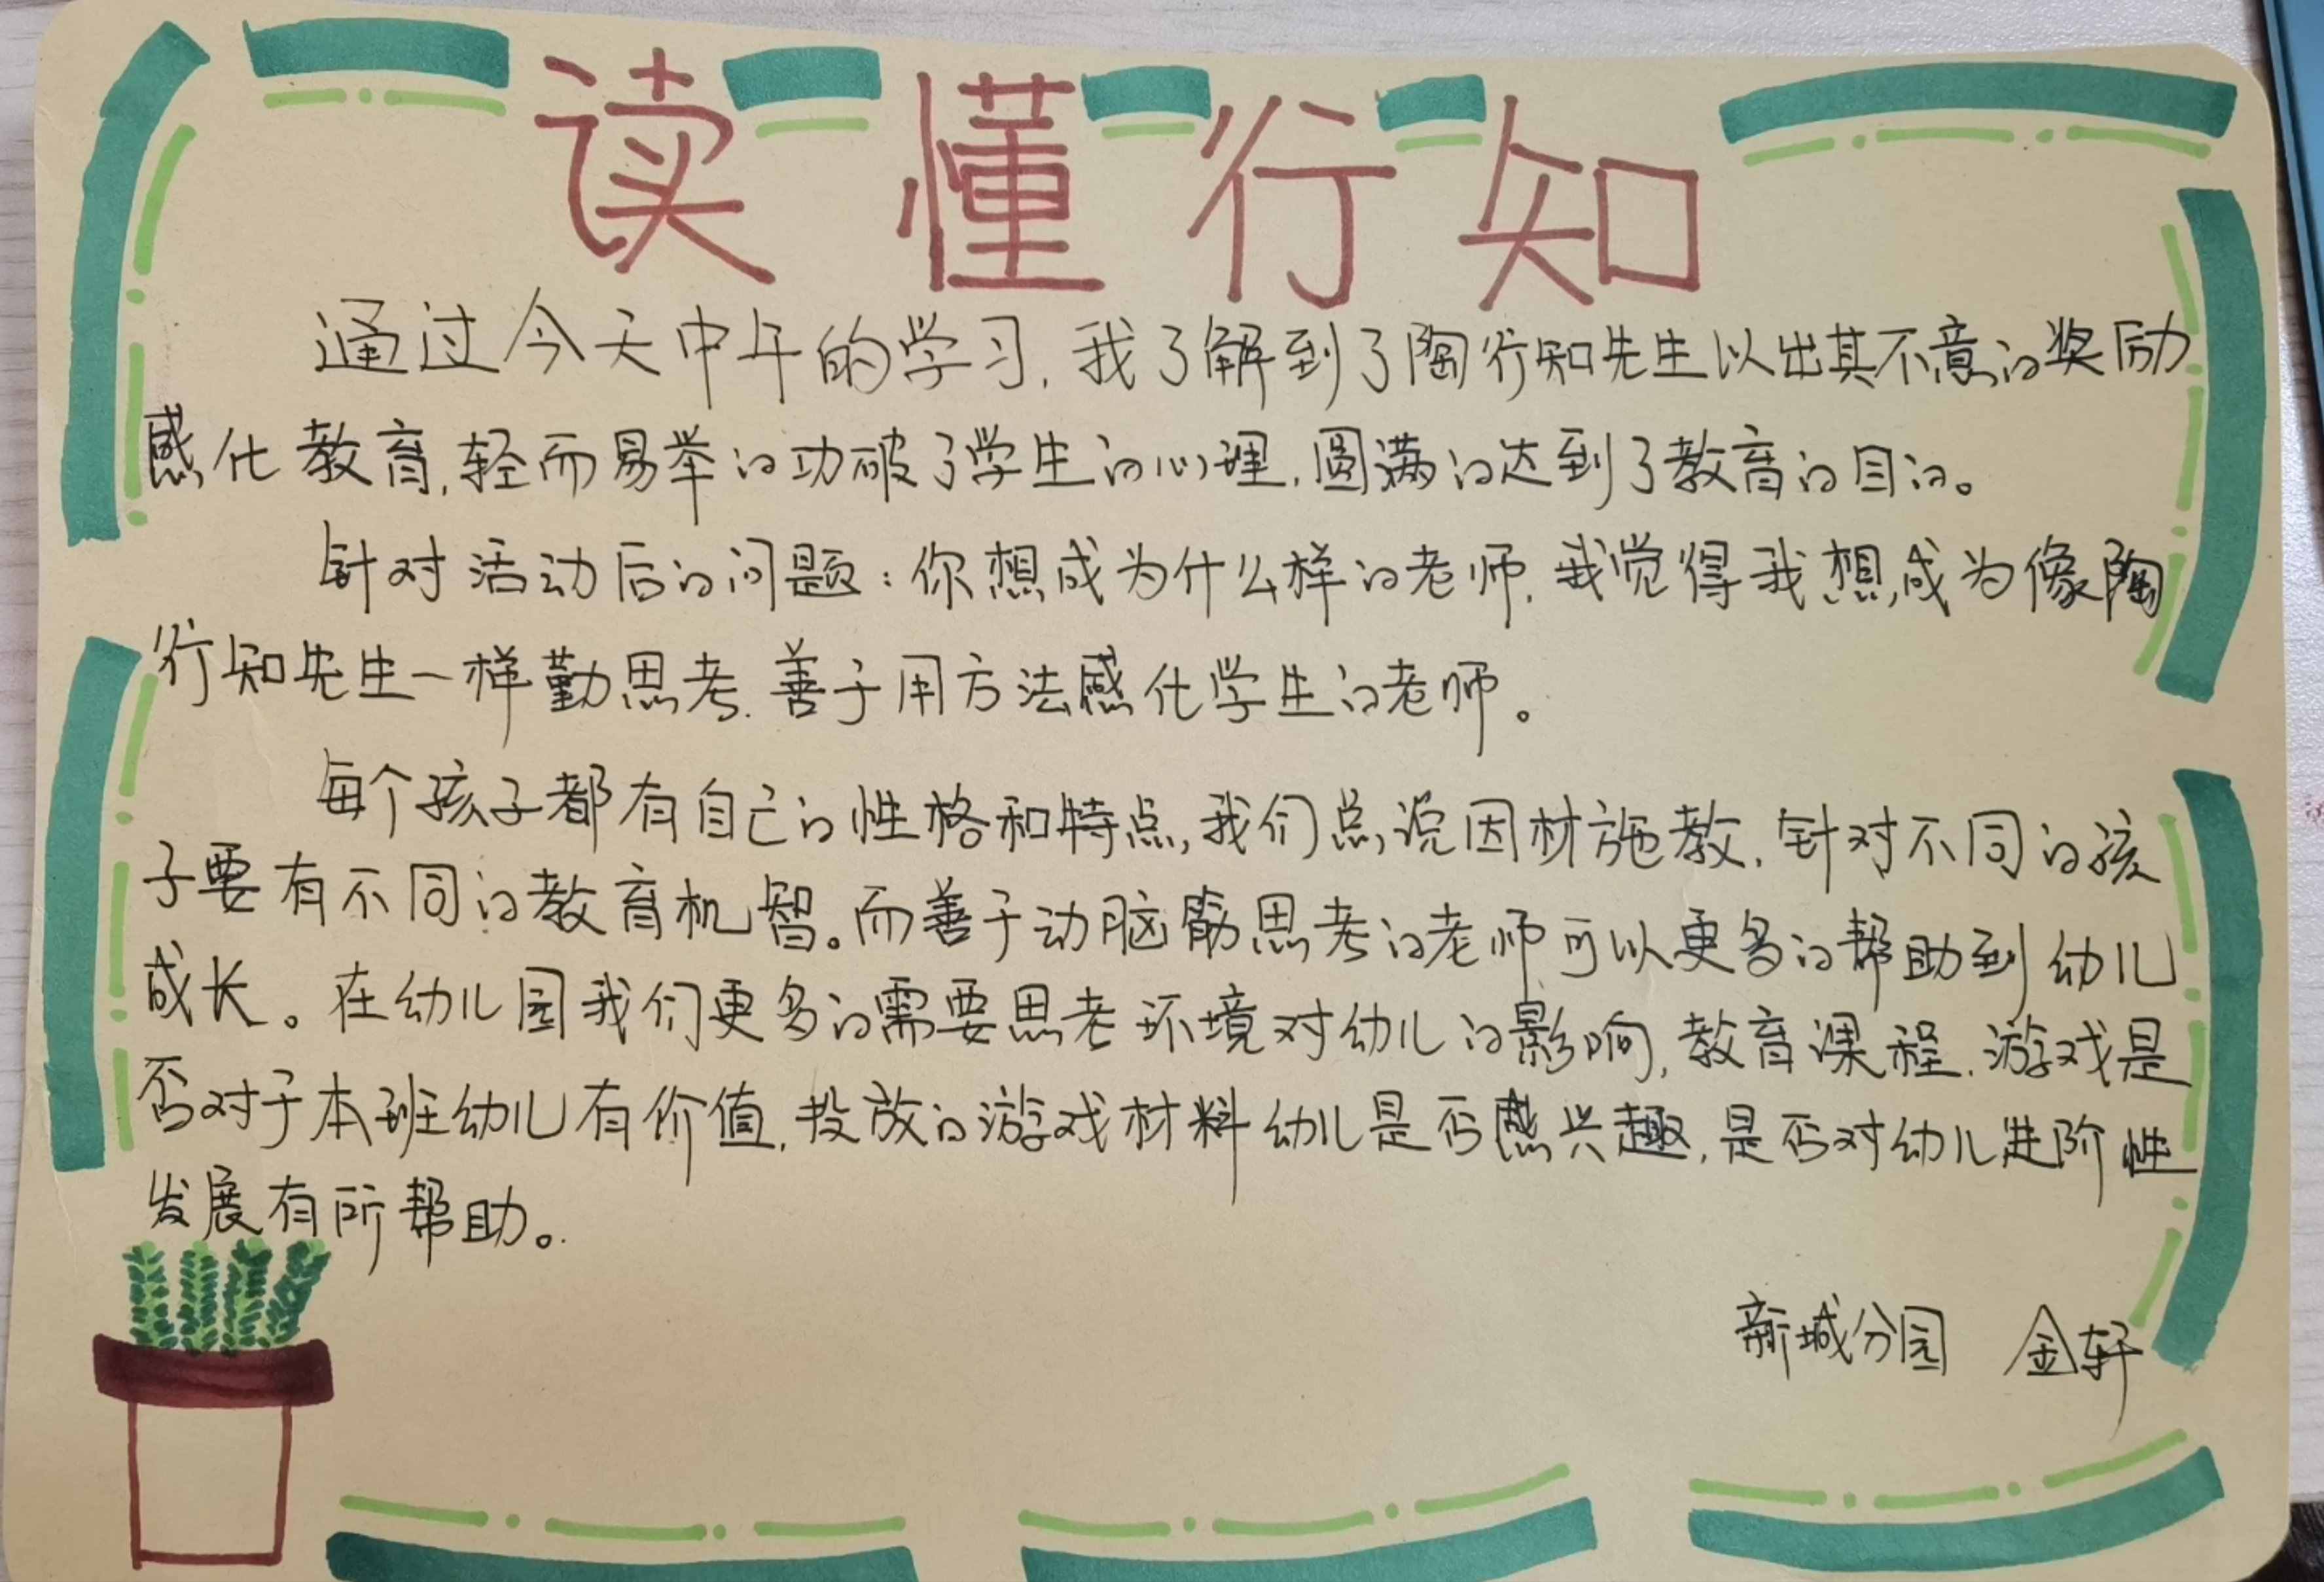 读懂行知
通过今天中午的学习,我了解到了陶行知先生以出其不意的奖励
感化教育,轻而易举的功破了学生的心理,圆满的达到了教育的目的。
针对活动后的问题:你想成为什么样的老师,我觉得我想成为像陶
行知先生一样勤思考,善于用方法感化学生的老师。
每个孩子都有自己的性格和特点,我们总说因材施教,针对不同的孩
子要有不同的教育机智。而善于动脑筋思考的老师可以更多的帮助到幼儿
成长。在幼儿园我们更多的需要思考环境对幼儿的影响,教育课程,游戏是
否对于本班幼儿有价值,投放的游戏材料幼儿是否感兴趣,是否对幼儿进阶性
发展有所帮助。
新城分园 金轩